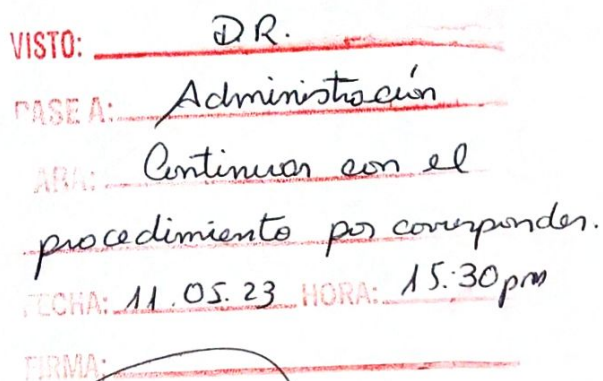 VISTO: D.R.
PASE A: Administración
ARA: Continuar con el
procedimiento por corresponder.
FECHA: 11.05.23 HORA: 15:30pm
FIRMA: